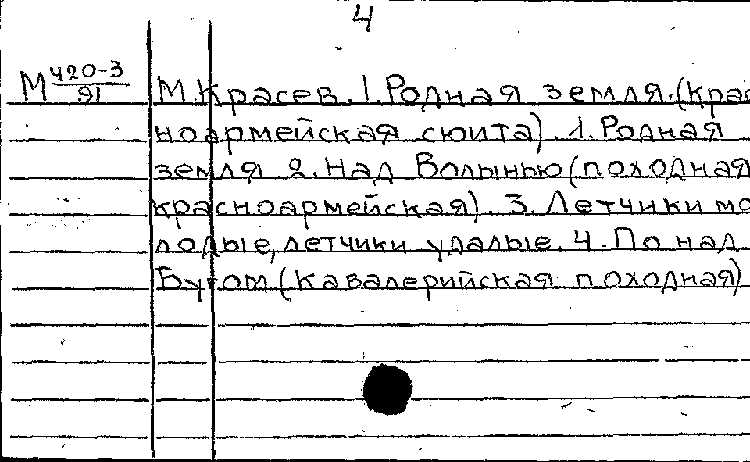 4
М 420-3/91 М. Красев. 1. Родная земля. (крас
ноармейская сюита). 1. Родная
земля 2. Над Волынью (походная
красноармейская). 3. Летчики мо
лодые, летчики удалые. 4. По над
Бугом (Кавалерийская походная)